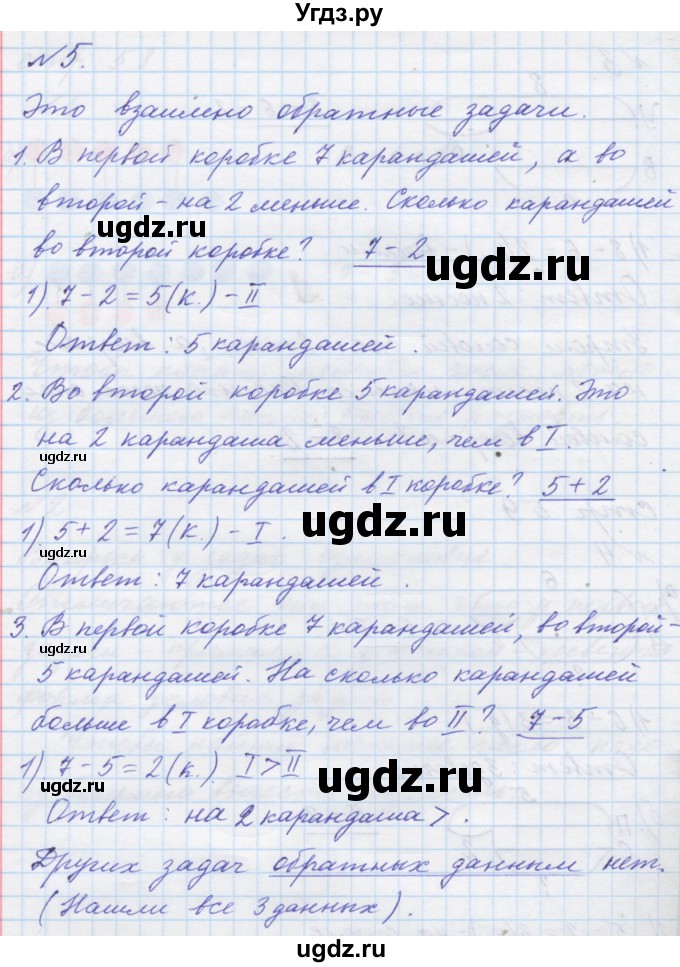 Угдз.ру
№5.
Это взаимено обратные задачи.
1. В первой коробке 7 карандашей, а во
второй – на 2 меньше. Сколько карандашей
во второй коробке? 7 – 2
1) 7 – 2 = 5 (к.) – II
Ответ: 5 карандашей.
2. Во второй коробке 5 карандашей. Это
на 2 карандаша меньше, чем в I.
Сколько карандашей в I коробке? 5 + 2
1) 5 + 2 = 7 (к.) – I.
Ответ: 7 карандашей.
3. В первой коробке 7 карандашей, во второй –
5 карандашей. На сколько карандашей
больше в I коробке, чем во II? 7 – 5
1) 7 – 5 = 2 (к.) I > II
Ответ: на 2 карандаша >.
Других задач обратных данным нет.
(Нашли все 3 данных).
ugdz.ru
ugdz.ru
ugdz.ru
ugdz.ru
ugdz.ru
ugdz.ru
ugdz.ru
ugdz.ru
ugdz.ru